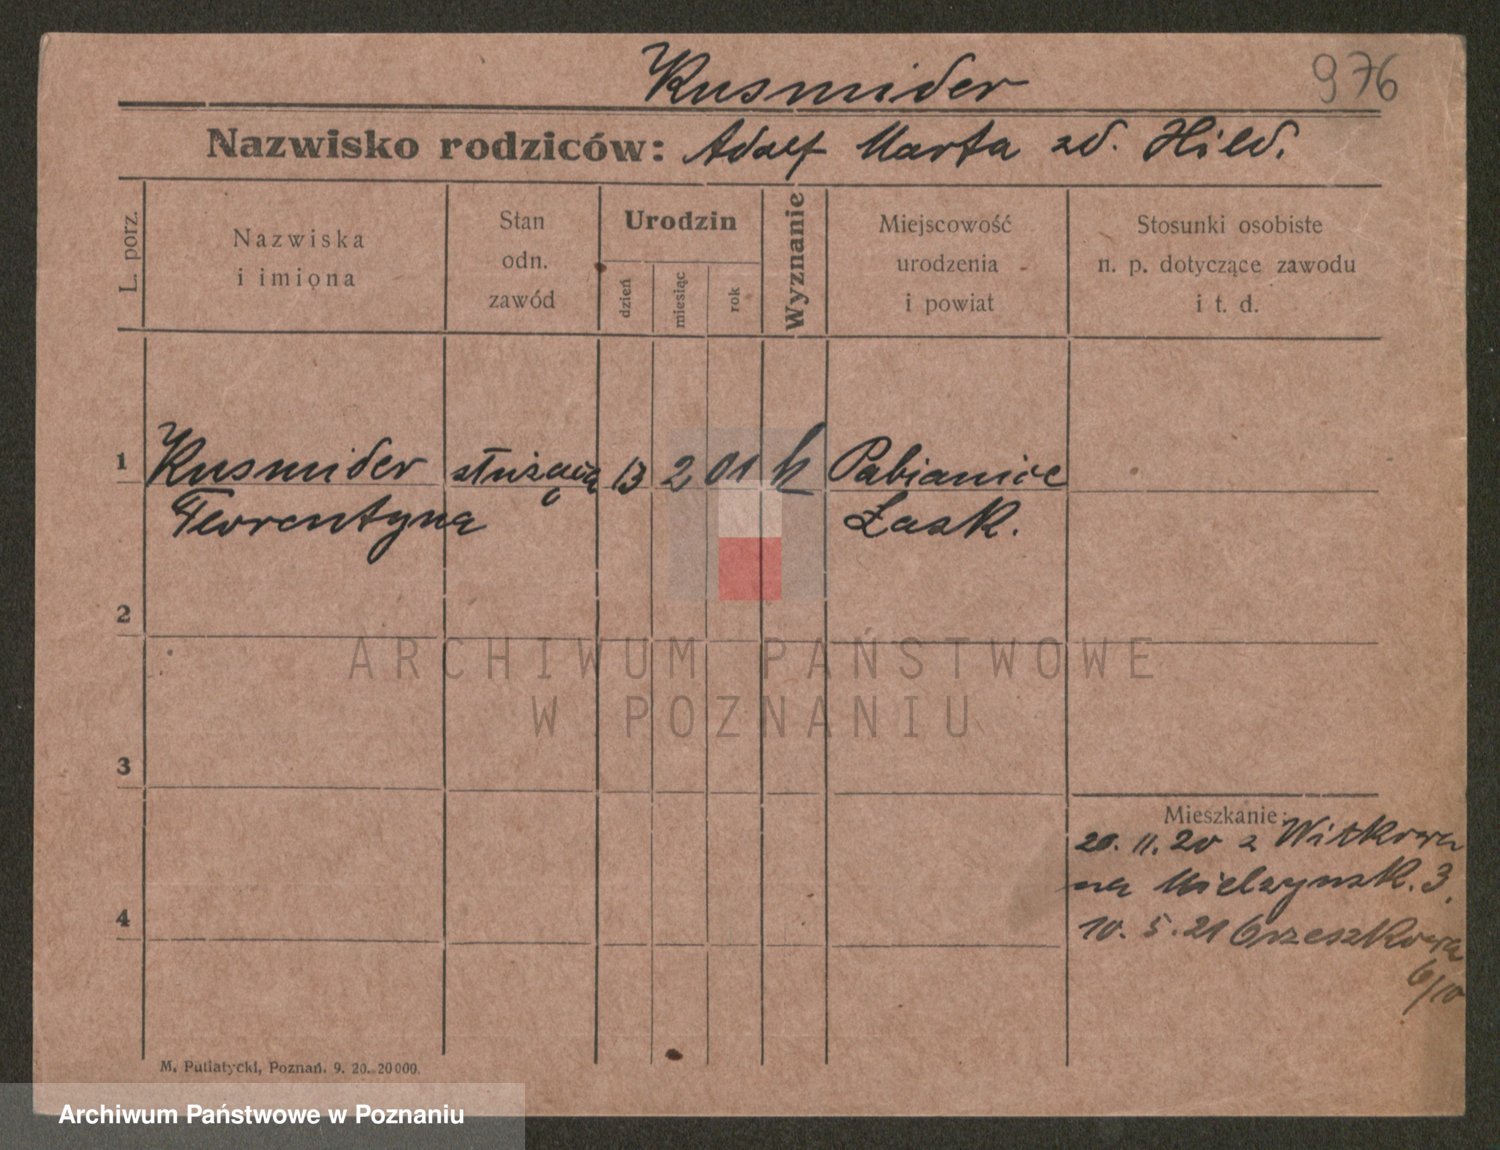 Kusmider
976
Nazwisko rodziców: Adolf Marta zd. Hild.
L. porz.
Nazwiska
i imiona
Stan
odn.
zawód
Urodzin
dzień
miesiąc
rok
Wyznanie
Miejscowość
urodzenia
i powiat
Stosunki osobiste
n. p. dotyczące zawodu
i t. d.
1 Kusmider służąca 13 2 01 k Pabianice
Florentyna Łask.
2
ARCHIWUM PAŃSTWOWE
W POZNANIU
3
Mieszkanie:
20. 11. 20 z Witkowa
na Mielzynsk. 3.
4
10. 5. 21 Orzeszkowa
6/10
M. Putiatycki, Poznań. 9. 20. 20000.
Archiwum Państwowe w Poznaniu